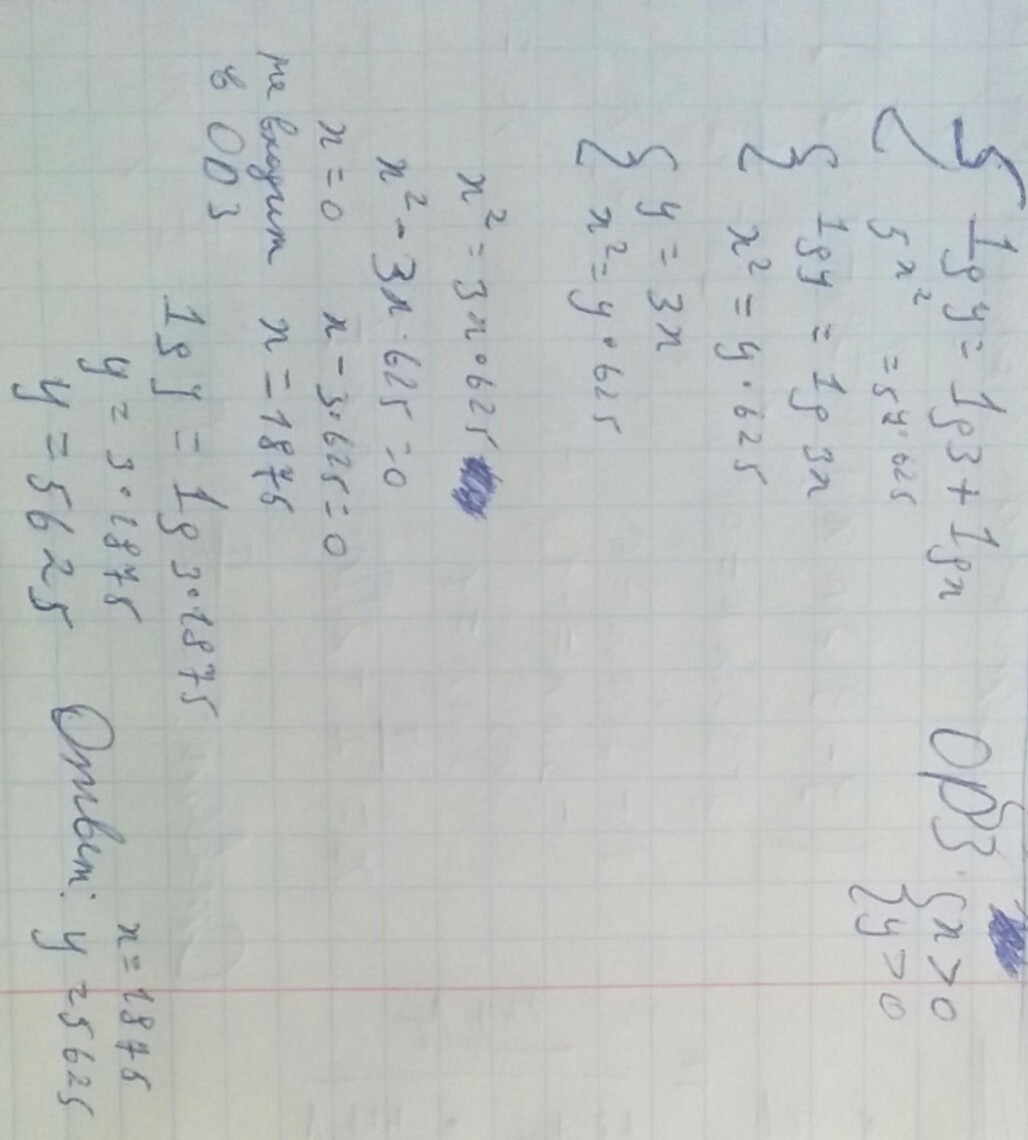 { lg y = lg 3 + lg x
5^x² = 5^y · 625
ОДЗ: { x > 0
y > 0
{ lg y = lg 3x
x² = y · 625
{ y = 3x
x² = y · 625
x² = 3x · 625
x² - 3x · 625 = 0
x = 0 x - 3·625 = 0
не входит x = 1875
в ОДЗ
lg y = lg 3·1875
y = 3·1875
y = 5625
Ответ: x = 1875
y = 5625